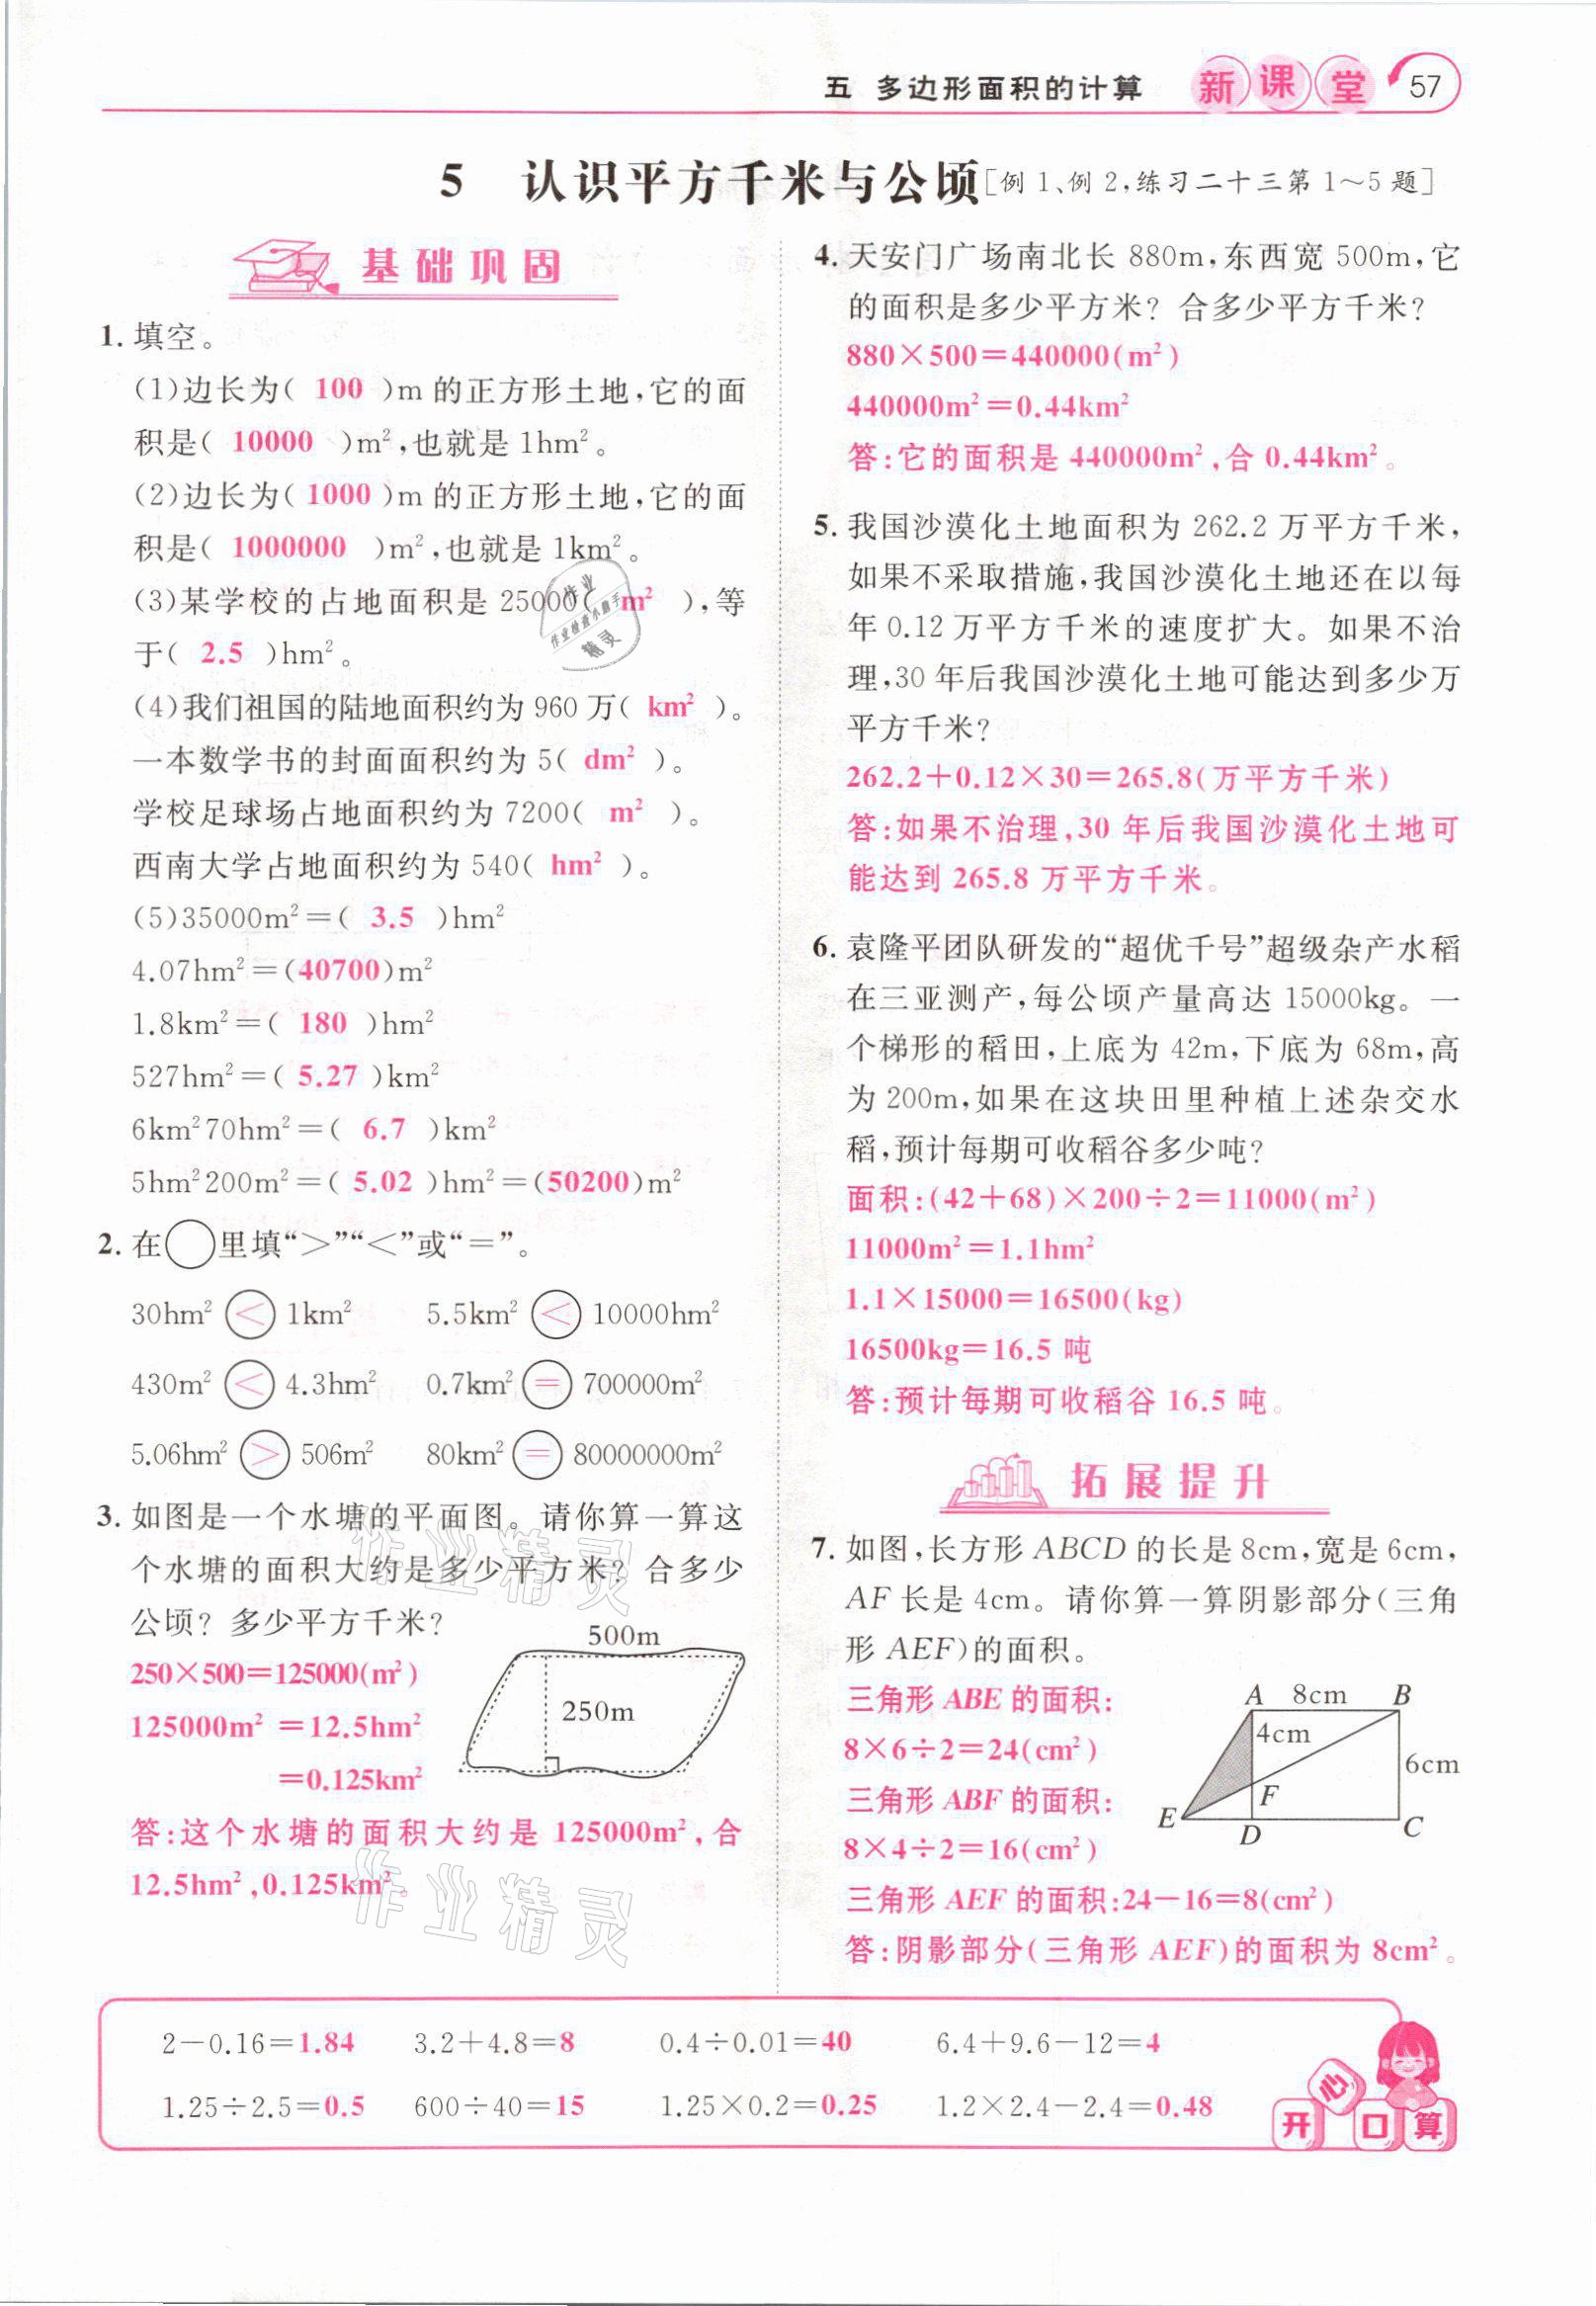 五 多边形面积的计算 新课堂 57
5 认识平方千米与公顷[例1、例2,练习二十三第1～5题]
基础巩固
1. 填空。
(1)边长为( 100 )m的正方形土地,它的面
积是( 10000 )m²,也就是1hm²。
(2)边长为( 1000 )m的正方形土地,它的面
积是( 1000000 )m²,也就是1km²。
(3)某学校的占地面积是25000( m² ),等
于( 2.5 )hm²。
(4)我们祖国的陆地面积约为960万( km² )。
一本数学书的封面面积约为5( dm² )。
学校足球场占地面积约为7200( m² )。
西南大学占地面积约为540( hm² )。
(5)35000m²=( 3.5 )hm²
4.07hm²=(40700)m²
1.8km²=( 180 )hm²
527hm²=( 5.27 )km²
6km²70hm²=( 6.7 )km²
5hm²200m²=( 5.02 )hm²=(50200)m²
2. 在○里填“>”“<”或“=”。
30hm² < 1km² 5.5km² < 10000hm²
430m² < 4.3hm² 0.7km² = 700000m²
5.06hm² > 506m² 80km² = 80000000m²
3. 如图是一个水塘的平面图。请你算一算这
个水塘的面积大约是多少平方米？合多少
公顷？多少平方千米？
500m
250m
250×500=125000(m²)
125000m² =12.5hm²
=0.125km²
答:这个水塘的面积大约是125000m²,合
12.5hm²,0.125km²。
4. 天安门广场南北长880m,东西宽500m,它
的面积是多少平方米？合多少平方千米？
880×500=440000(m²)
440000m²=0.44km²
答:它的面积是440000m²,合0.44km²。
5. 我国沙漠化土地面积为262.2万平方千米,
如果不采取措施,我国沙漠化土地还在以每
年0.12万平方千米的速度扩大。如果不治
理,30年后我国沙漠化土地可能达到多少万
平方千米？
262.2+0.12×30=265.8(万平方千米)
答:如果不治理,30年后我国沙漠化土地可
能达到265.8万平方千米。
6. 袁隆平团队研发的“超优千号”超级杂产水稻
在三亚测产,每公顷产量高达15000kg。一
个梯形的稻田,上底为42m,下底为68m,高
为200m,如果在这块田里种植上述杂交水
稻,预计每期可收稻谷多少吨？
面积:(42+68)×200÷2=11000(m²)
11000m²=1.1hm²
1.1×15000=16500(kg)
16500kg=16.5吨
答:预计每期可收稻谷16.5吨。
拓展提升
7. 如图,长方形ABCD的长是8cm,宽是6cm,
AF长是4cm。请你算一算阴影部分(三角
形AEF)的面积。
三角形ABE的面积:
8×6÷2=24(cm²)
三角形ABF的面积:
8×4÷2=16(cm²)
A 8cm B
4cm
6cm
F
E D C
三角形AEF的面积:24-16=8(cm²)
答:阴影部分(三角形AEF)的面积为8cm²。
2-0.16=1.84 3.2+4.8=8 0.4÷0.01=40 6.4+9.6-12=4
1.25÷2.5=0.5 600÷40=15 1.25×0.2=0.25 1.2×2.4-2.4=0.48
开心口算
作业精灵
作业精灵
作业检查小助手
精灵